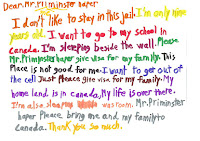 Dear.Mr.Priminster haper
I don't like to stay in this jail. I'm only nine
years old. I want to go to my school in
Canada. I'm sleeping beside the wall. Please
Mr.Priminster haper give visa for my family. This
Place is not good for me. I want to get out of
the cell Just Please give visa for my family. My
home land is in canada, My life is over there.
I'm also sleeping washroom. Mr.Priminster
haper Please bring me and my family to
Canada. Thank you so much.